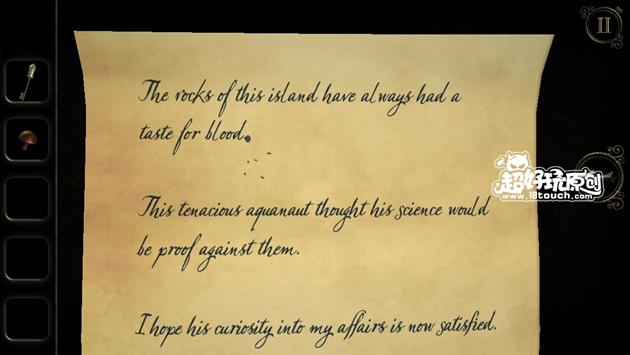 The rocks of this island have always had a
taste for blood.
This tenacious aquanaut thought his science would
be proof against them.
I hope his curiosity into my affairs is now satisfied.
超好玩原创
www.18touch.com